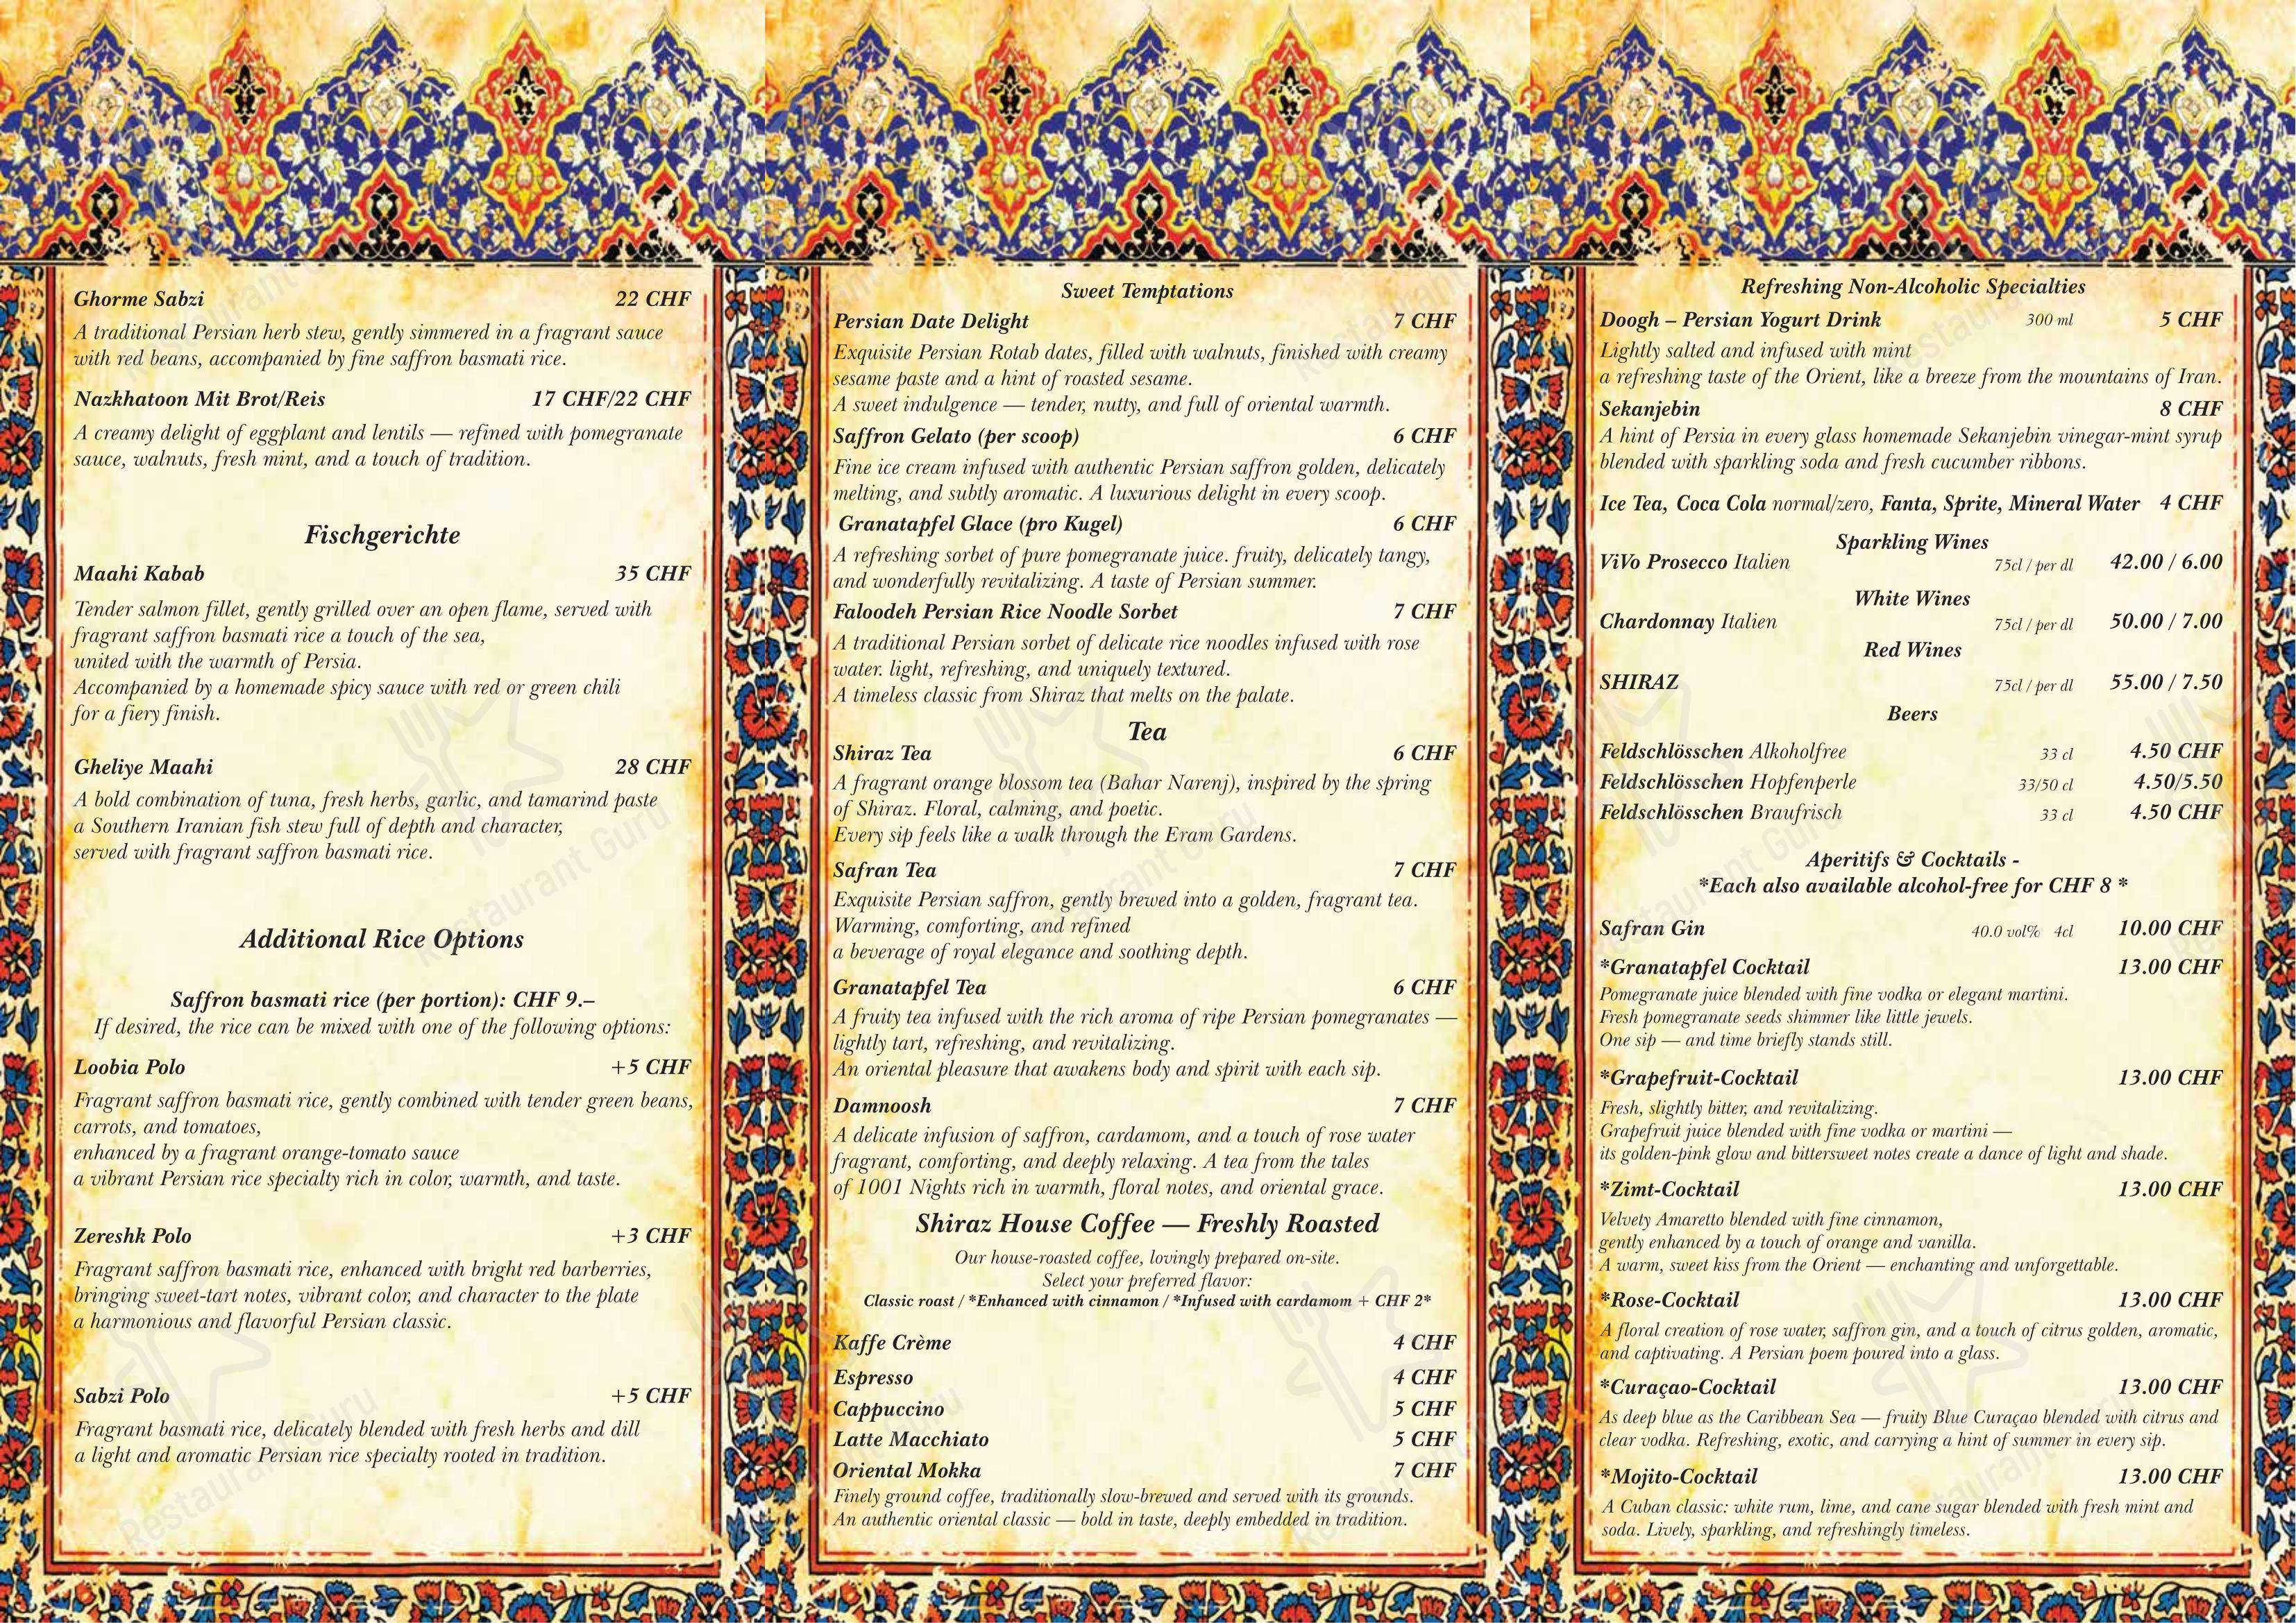 Ghorme Sabzi 22 CHF
A traditional Persian herb stew, gently simmered in a fragrant sauce
with red beans, accompanied by fine saffron basmati rice.
Nazkhatoon Mit Brot/Reis 17 CHF/22 CHF
A creamy delight of eggplant and lentils — refined with pomegranate
sauce, walnuts, fresh mint, and a touch of tradition.
Fischgerichte
Maahi Kabab 35 CHF
Tender salmon fillet, gently grilled over an open flame, served with
fragrant saffron basmati rice a touch of the sea,
united with the warmth of Persia.
Accompanied by a homemade spicy sauce with red or green chili
for a fiery finish.
Gheliye Maahi 28 CHF
A bold combination of tuna, fresh herbs, garlic, and tamarind paste
a Southern Iranian fish stew full of depth and character,
served with fragrant saffron basmati rice.
Additional Rice Options
Saffron basmati rice (per portion): CHF 9.–
If desired, the rice can be mixed with one of the following options:
Loobia Polo +5 CHF
Fragrant saffron basmati rice, gently combined with tender green beans,
carrots, and tomatoes,
enhanced by a fragrant orange-tomato sauce
a vibrant Persian rice specialty rich in color, warmth, and taste.
Zereshk Polo +3 CHF
Fragrant saffron basmati rice, enhanced with bright red barberries,
bringing sweet-tart notes, vibrant color, and character to the plate
a harmonious and flavorful Persian classic.
Sabzi Polo +5 CHF
Fragrant basmati rice, delicately blended with fresh herbs and dill
a light and aromatic Persian rice specialty rooted in tradition.
Sweet Temptations
Persian Date Delight 7 CHF
Exquisite Persian Rotab dates, filled with walnuts, finished with creamy
sesame paste and a hint of roasted sesame.
A sweet indulgence — tender, nutty, and full of oriental warmth.
Saffron Gelato (per scoop) 6 CHF
Fine ice cream infused with authentic Persian saffron golden, delicately
melting, and subtly aromatic. A luxurious delight in every scoop.
Granatapfel Glace (pro Kugel) 6 CHF
A refreshing sorbet of pure pomegranate juice. fruity, delicately tangy,
and wonderfully revitalizing. A taste of Persian summer.
Faloodeh Persian Rice Noodle Sorbet 7 CHF
A traditional Persian sorbet of delicate rice noodles infused with rose
water. light, refreshing, and uniquely textured.
A timeless classic from Shiraz that melts on the palate.
Tea
Shiraz Tea 6 CHF
A fragrant orange blossom tea (Bahar Narenj), inspired by the spring
of Shiraz. Floral, calming, and poetic.
Every sip feels like a walk through the Eram Gardens.
Safran Tea 7 CHF
Exquisite Persian saffron, gently brewed into a golden, fragrant tea.
Warming, comforting, and refined
a beverage of royal elegance and soothing depth.
Granatapfel Tea 6 CHF
A fruity tea infused with the rich aroma of ripe Persian pomegranates —
lightly tart, refreshing, and revitalizing.
An oriental pleasure that awakens body and spirit with each sip.
Damnoosh 7 CHF
A delicate infusion of saffron, cardamom, and a touch of rose water
fragrant, comforting, and deeply relaxing. A tea from the tales
of 1001 Nights rich in warmth, floral notes, and oriental grace.
Shiraz House Coffee — Freshly Roasted
Our house-roasted coffee, lovingly prepared on-site.
Select your preferred flavor:
Classic roast / *Enhanced with cinnamon / *Infused with cardamom + CHF 2*
Kaffe Crème 4 CHF
Espresso 4 CHF
Cappuccino 5 CHF
Latte Macchiato 5 CHF
Oriental Mokka 7 CHF
Finely ground coffee, traditionally slow-brewed and served with its grounds.
An authentic oriental classic — bold in taste, deeply embedded in tradition.
Refreshing Non-Alcoholic Specialties
Doogh – Persian Yogurt Drink 300 ml 5 CHF
Lightly salted and infused with mint
a refreshing taste of the Orient, like a breeze from the mountains of Iran.
Sekanjebin 8 CHF
A hint of Persia in every glass homemade Sekanjebin vinegar-mint syrup
blended with sparkling soda and fresh cucumber ribbons.
Ice Tea, Coca Cola normal/zero, Fanta, Sprite, Mineral Water 4 CHF
Sparkling Wines
ViVo Prosecco Italien 75cl / per dl 42.00 / 6.00
White Wines
Chardonnay Italien 75cl / per dl 50.00 / 7.00
Red Wines
SHIRAZ 75cl / per dl 55.00 / 7.50
Beers
Feldschlösschen Alkoholfree 33 cl 4.50 CHF
Feldschlösschen Hopfenperle 33/50 cl 4.50/5.50
Feldschlösschen Braufrisch 33 cl 4.50 CHF
Aperitifs & Cocktails -
*Each also available alcohol-free for CHF 8 *
Safran Gin 40.0 vol% 4cl 10.00 CHF
*Granatapfel Cocktail 13.00 CHF
Pomegranate juice blended with fine vodka or elegant martini.
Fresh pomegranate seeds shimmer like little jewels.
One sip — and time briefly stands still.
*Grapefruit-Cocktail 13.00 CHF
Fresh, slightly bitter, and revitalizing.
Grapefruit juice blended with fine vodka or martini —
its golden-pink glow and bittersweet notes create a dance of light and shade.
*Zimt-Cocktail 13.00 CHF
Velvety Amaretto blended with fine cinnamon,
gently enhanced by a touch of orange and vanilla.
A warm, sweet kiss from the Orient — enchanting and unforgettable.
*Rose-Cocktail 13.00 CHF
A floral creation of rose water, saffron gin, and a touch of citrus golden, aromatic,
and captivating. A Persian poem poured into a glass.
*Curaçao-Cocktail 13.00 CHF
As deep blue as the Caribbean Sea — fruity Blue Curaçao blended with citrus and
clear vodka. Refreshing, exotic, and carrying a hint of summer in every sip.
*Mojito-Cocktail 13.00 CHF
A Cuban classic: white rum, lime, and cane sugar blended with fresh mint and
soda. Lively, sparkling, and refreshingly timeless.
Restaurant Guru